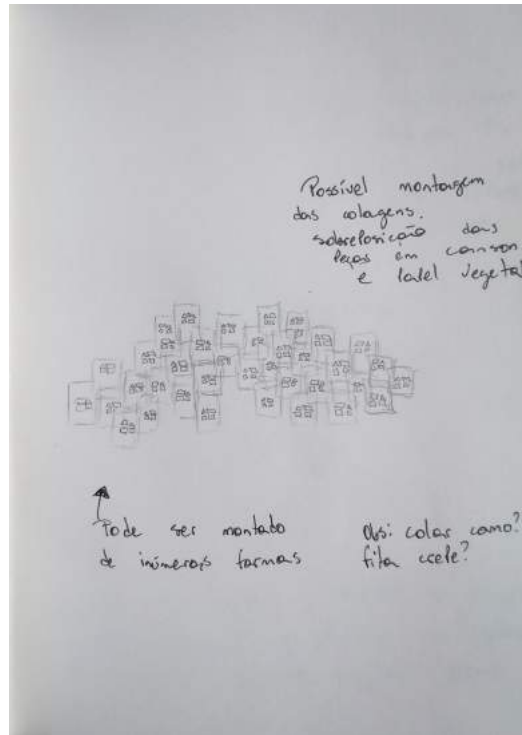 Possível montagem
das colagens.
sobreposição das
peças em canson
e papel vegetal
Pode ser montado
de inúmeras formas
Obs: colar como?
fita crepe?